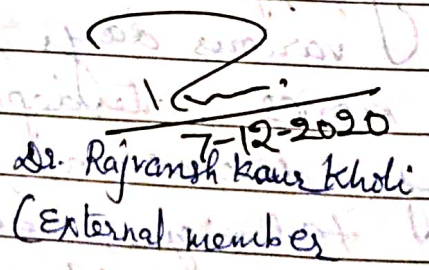 7-12-2020
Dr. Rajvansh Kaur Kholi
(External member